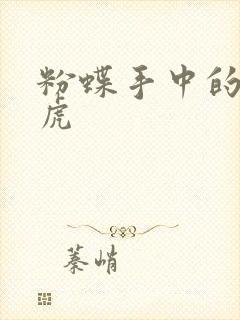 粉蝶手中的
虎
蓁峭